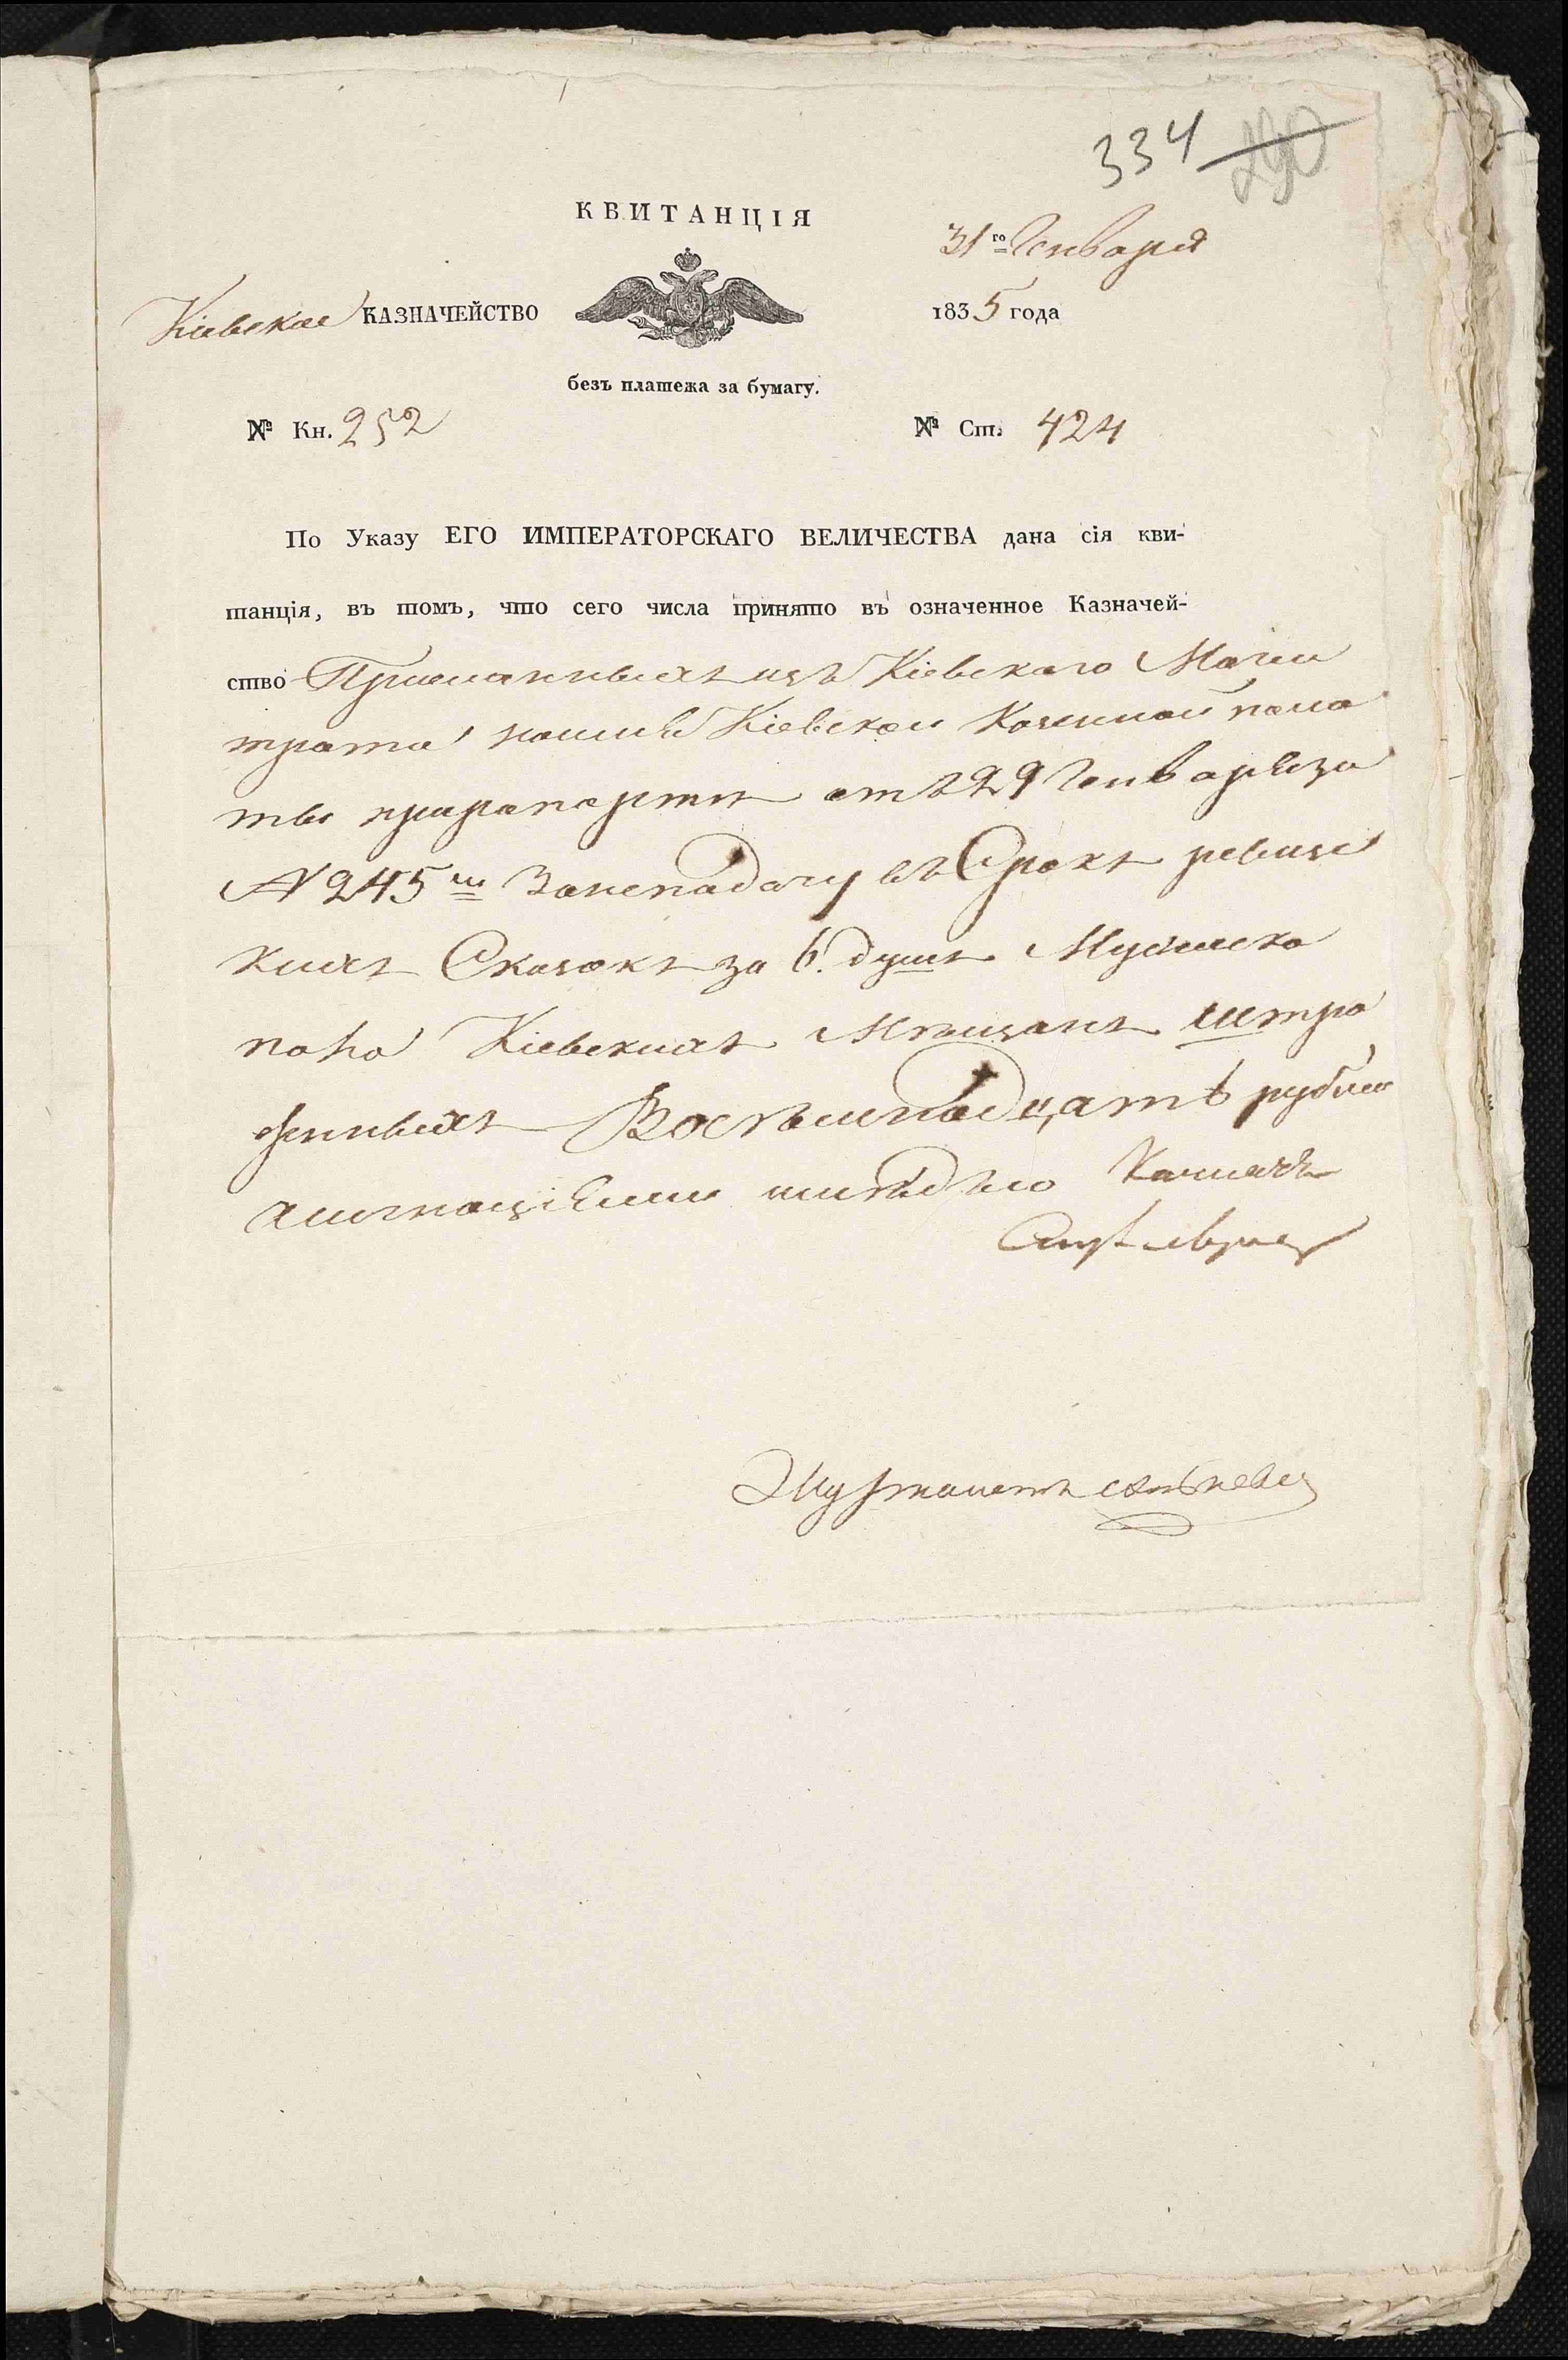 334 290
КВИТАНЦІЯ
31го Генваря
Кіевское КАЗНАЧЕЙСТВО
1835 года
безъ платежа за бумагу.
№ Кн. 252
№ Ст. 424
По Указу ЕГО ИМПЕРАТОРСКАГО ВЕЛИЧЕСТВА дана сія кви-
танція, въ томъ, что сего числа принято въ означенное Казначей-
ство Присланныхъ изъ Кіевскаго Маги
трата Кіевской Казенной пала
ты прирапортѣ отъ 29 Генваря за
N 245м Занеподачу въ Срокъ ревизс
кихъ Сказокъ за 6. душъ Мужеска
пола Кіевскихъ Мѣщанъ штра
фныхъ Восѣмнадцать рублей